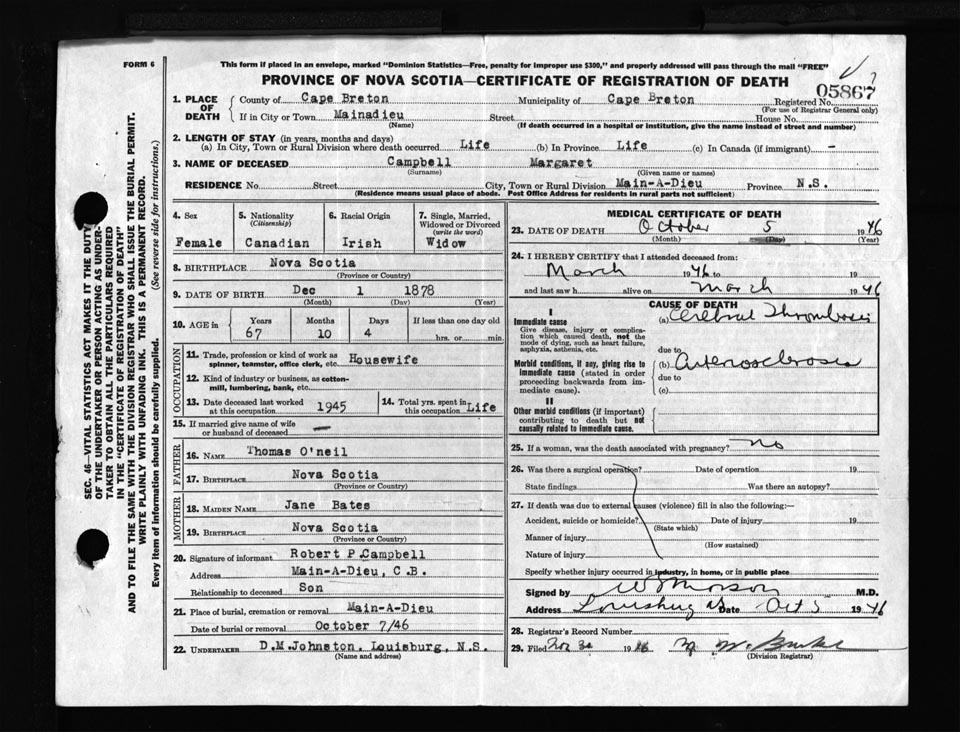 FORM 6
This form if placed in an envelope, marked "Dominion Statistics—Free, penalty for improper use $300," and properly addressed will pass through the mail "FREE"
PROVINCE OF NOVA SCOTIA—CERTIFICATE OF REGISTRATION OF DEATH
05867
Registered No.
(For use of Registrar General only)
1. PLACE OF DEATH
County of Cape Breton Municipality of Cape Breton
If in City or Town Mainadieu Street House No.
(Name) (If death occurred in a hospital or institution, give the name instead of street and number)
2. LENGTH OF STAY (in years, months and days)
(a) In City, Town or Rural Division where death occurred Life (b) In Province Life (c) In Canada (if immigrant) -
3. NAME OF DECEASED Campbell Margaret
(Surname) (Given name or names)
RESIDENCE No. Street City, Town or Rural Division Main-A-Dieu Province N.S.
(Residence means usual place of abode. Post Office Address for residents in rural parts not sufficient)
4. Sex
Female
5. Nationality
(Citizenship)
Canadian
6. Racial Origin
Irish
7. Single, Married,
Widowed or Divorced
(write the word)
Widow
8. BIRTHPLACE Nova Scotia
(Province or Country)
9. DATE OF BIRTH Dec 1 1878
(Month) (Day) (Year)
10. AGE in
Years Months Days If less than one day old
67 10 4 hrs. or min.
OCCUPATION
11. Trade, profession or kind of work as
spinner, teamster, office clerk, etc. Housewife
12. Kind of industry or business, as cotton-
mill, lumbering, bank, etc.
13. Date deceased last worked
at this occupation 1945
14. Total yrs. spent in
this occupation Life
15. If married give name of wife
or husband of deceased —
FATHER
16. NAME Thomas O'neil
17. BIRTHPLACE Nova Scotia
(Province or Country)
MOTHER
18. MAIDEN NAME Jane Bates
19. BIRTHPLACE Nova Scotia
(Province or Country)
20. Signature of informant Robert P.Campbell
Address Main-A-Dieu, C.B.
Relationship to deceased Son
21. Place of burial, cremation or removal Main-A-Dieu
Date of burial or removal October 7/46
22. UNDERTAKER D.M.Johnston. Louisburg, N.S.
(Name and address)
MEDICAL CERTIFICATE OF DEATH
23. DATE OF DEATH October 5 1946
(Month) (Day) (Year)
24. I HEREBY CERTIFY that I attended deceased from:
March 1946 to 19
and last saw h alive on March 1946
CAUSE OF DEATH
I
Immediate cause
Give disease, injury or complica-
tion which caused death, not the
mode of dying, such as heart failure,
asphyxia, asthenia, etc.
(a) Cerebral Thrombosis
due to
Morbid conditions, if any, giving rise to
immediate cause (stated in order
proceeding backwards from im-
mediate cause).
(b) Arteriosclerosis
due to
(c)
II
Other morbid conditions (if important)
contributing to death but not
causally related to immediate cause.
25. If a woman, was the death associated with pregnancy? No
26. Was there a surgical operation? Date of operation 19
State findings Was there an autopsy?
27. If death was due to external causes (violence) fill in also the following:—
Accident, suicide or homicide? Date of injury 19
(State which)
Manner of injury
(How sustained)
Nature of injury
Specify whether injury occurred in industry, in home, or in public place
Signed by M.D.
Address Louisburg NS Date Oct 5 1946
28. Registrar's Record Number
29. Filed Nov 30 1946 Burke
(Division Registrar)
SEC. 46—VITAL STATISTICS ACT MAKES IT THE DUTY
OF THE UNDERTAKER OR PERSON ACTING AS UNDER-
TAKER TO OBTAIN ALL THE PARTICULARS REQUIRED
IN THE "CERTIFICATE OF REGISTRATION OF DEATH"
AND TO FILE THE SAME WITH THE DIVISION REGISTRAR WHO SHALL ISSUE THE BURIAL PERMIT.
WRITE PLAINLY WITH UNFADING INK. THIS IS A PERMANENT RECORD.
Every item of information should be carefully supplied. (See reverse side for instructions.)